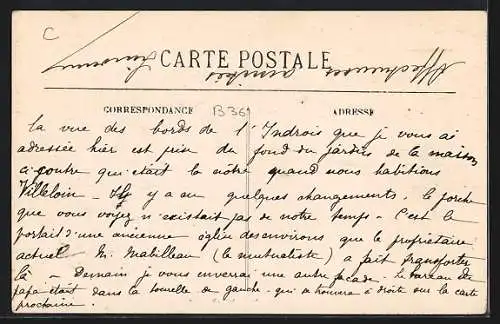 C
Affectueuses amitiés
CARTE POSTALE
CORRESPONDANCE B36 ADRESSE
La vue des bords de l'Indrois que je vous ai
adressée hier est prise du fond du jardin de la maison
ci-contre qui était la nôtre quand nous habitions
Villeloin - Il y a eu quelques changements, le porche
que vous voyez n'existait pas de notre temps - C'est le
portail d'une ancienne église des environs que le propriétaire
actuel M. Mabilleau (le mutualiste) a fait transporter
là - Demain je vous enverrai une autre façade. Le bureau de
papa était dans la tourelle de gauche - qui se trouvera à droite sur la carte
prochaine.